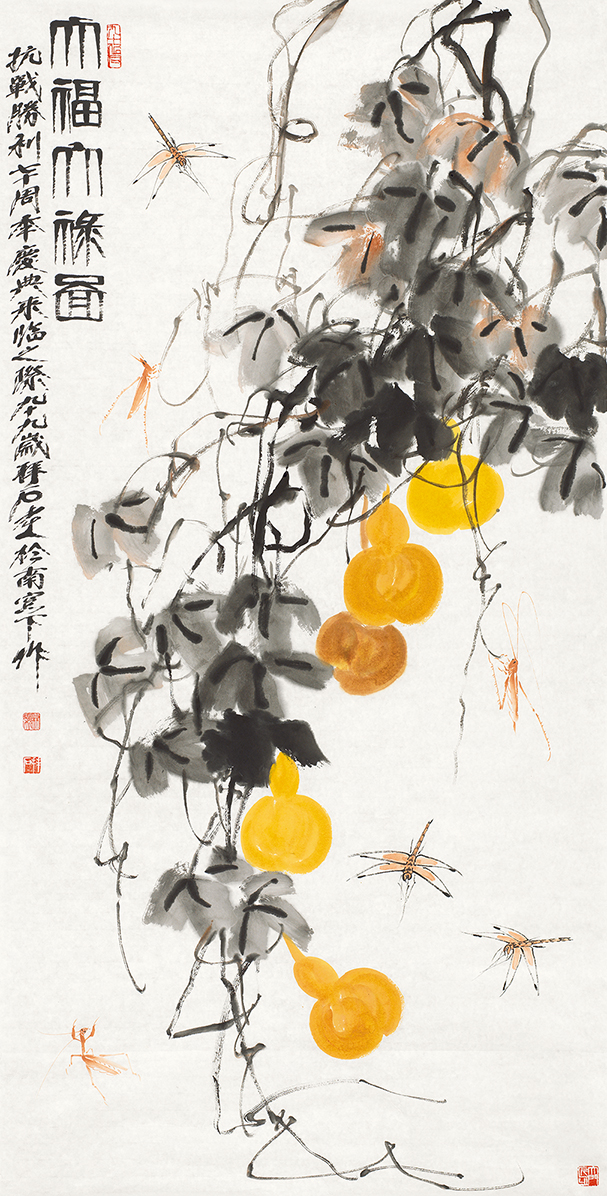 大福大祿啚
抗戰勝利周年慶典來臨之際九十九歲石於南窗下作